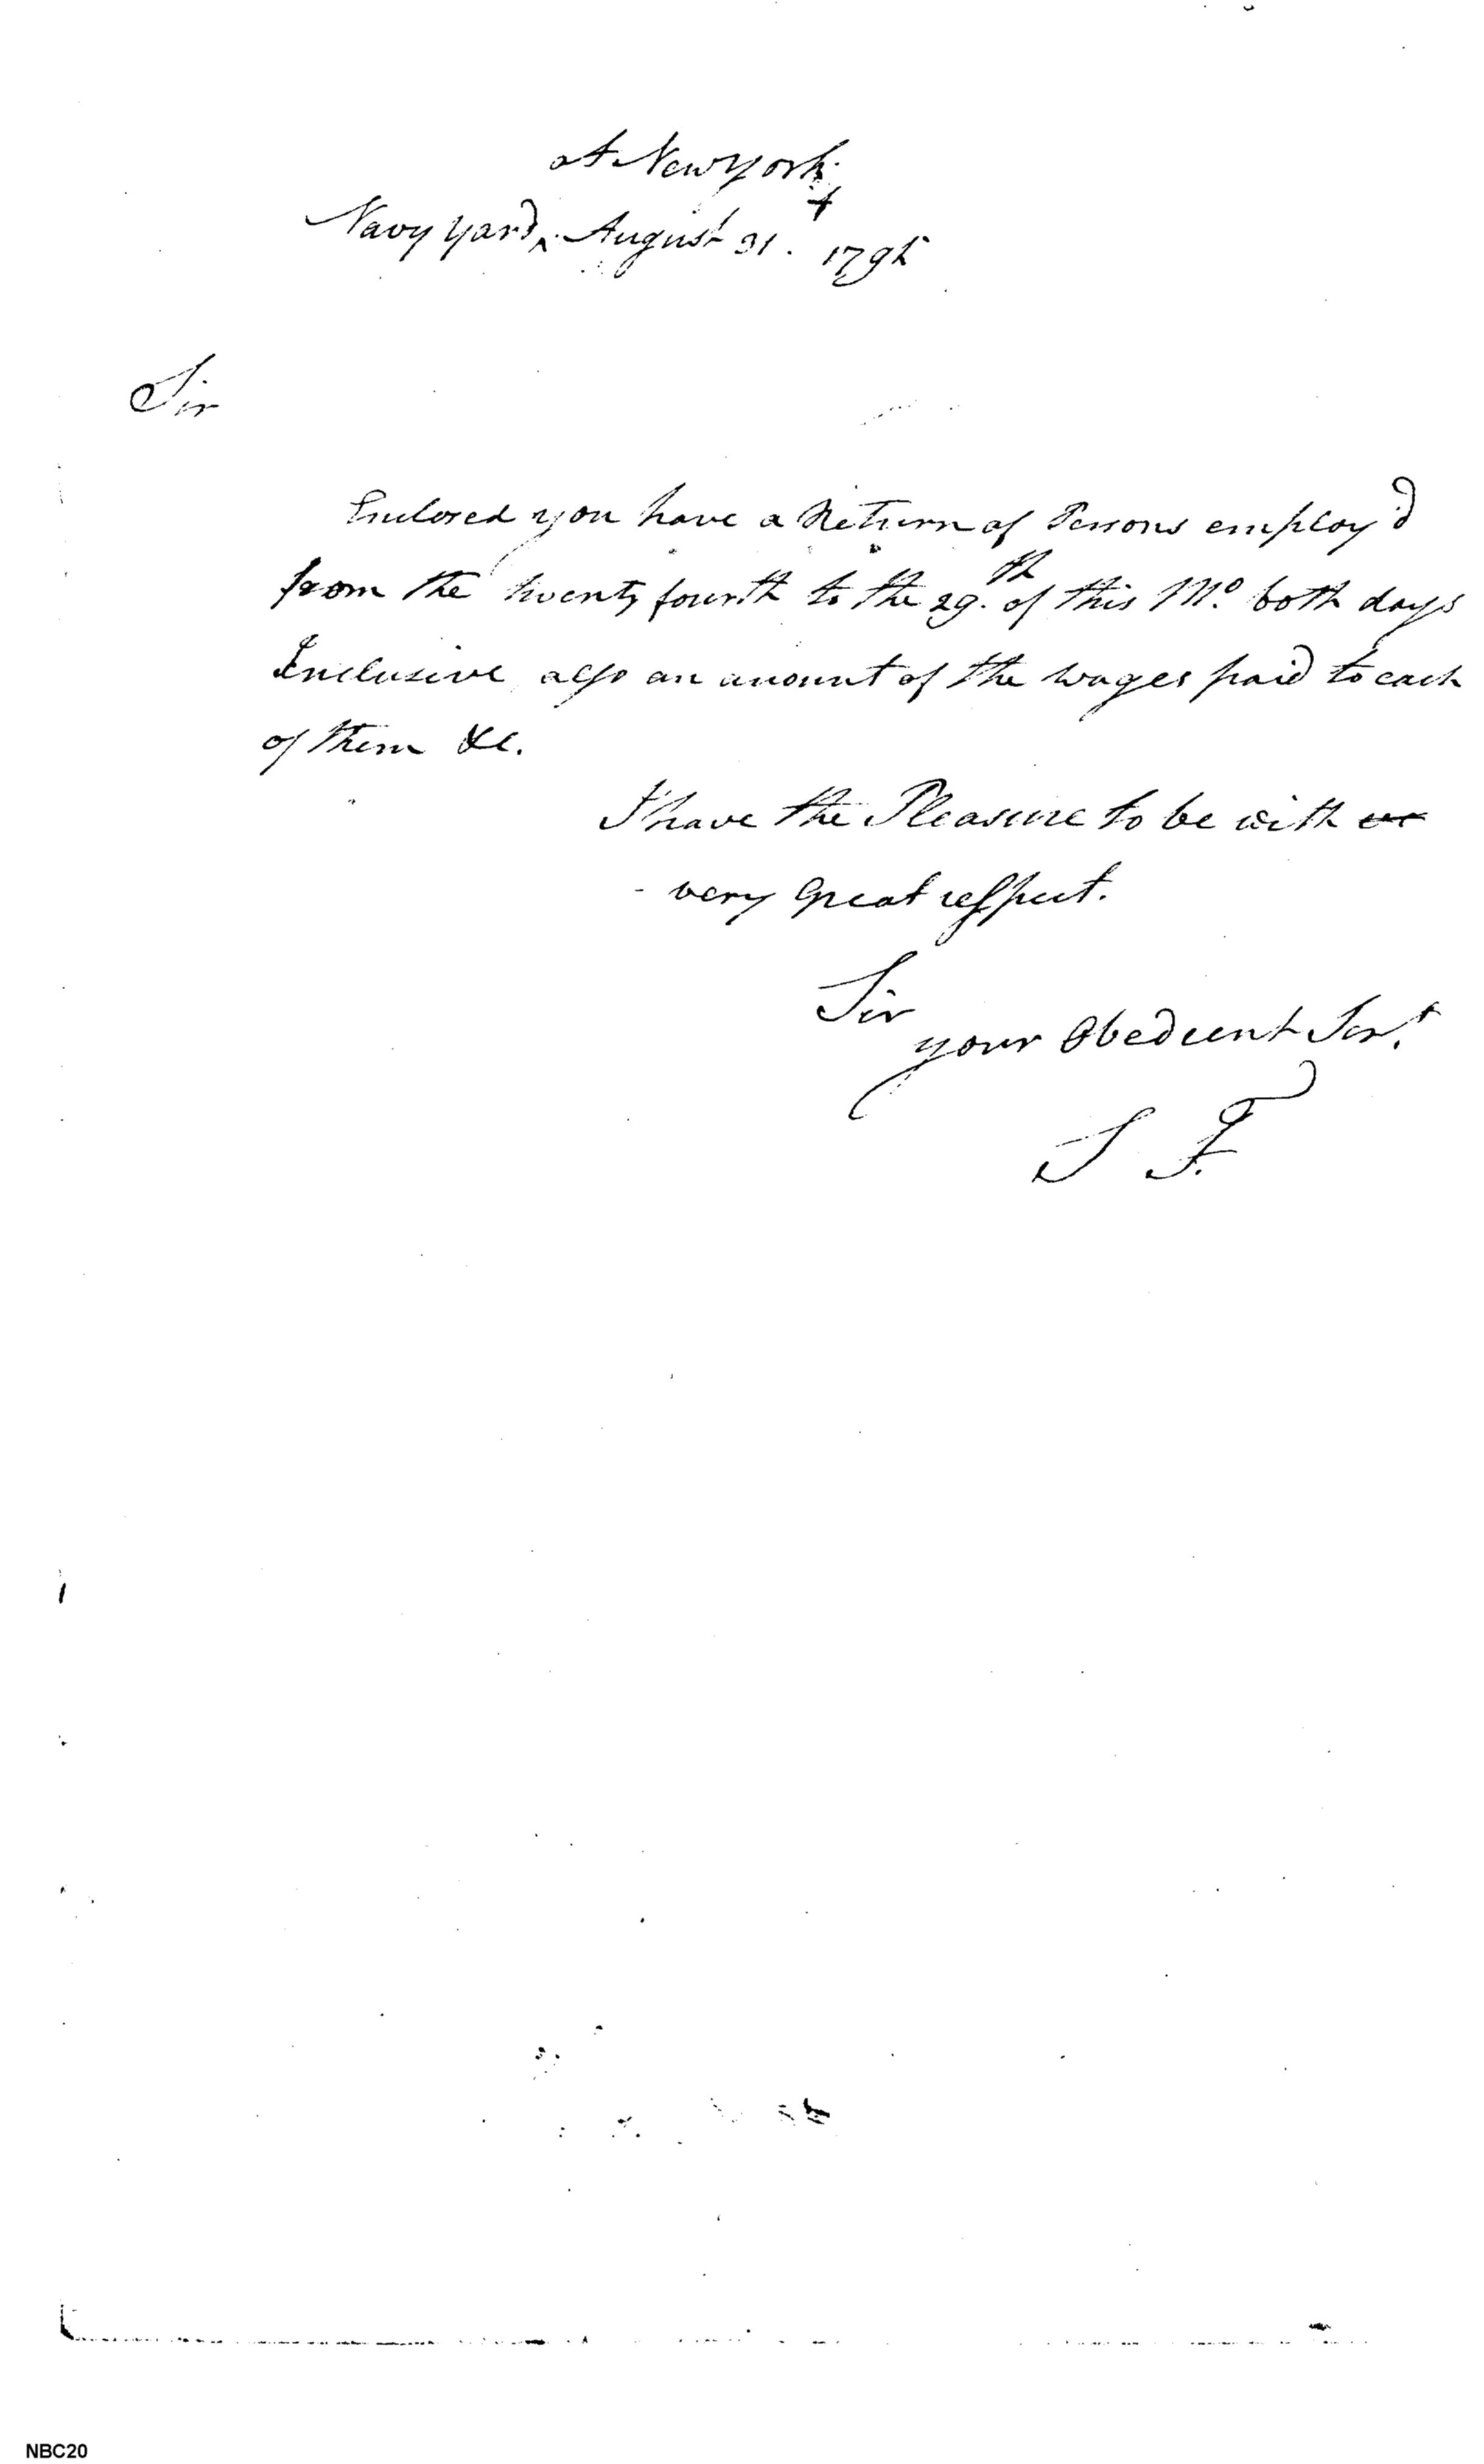 at New York
Navy Yard ^ August 31. 1795
Sir
Enclosed you have a Return of Persons employ'd
from the twenty fourth to the 29th of this Mo. both days
Inclusive also an amount of the wages paid to each
of them &c.
I have the Pleasure to be with
very Great respect.
Sir
your Obedient Sert.
J F.
NBC20